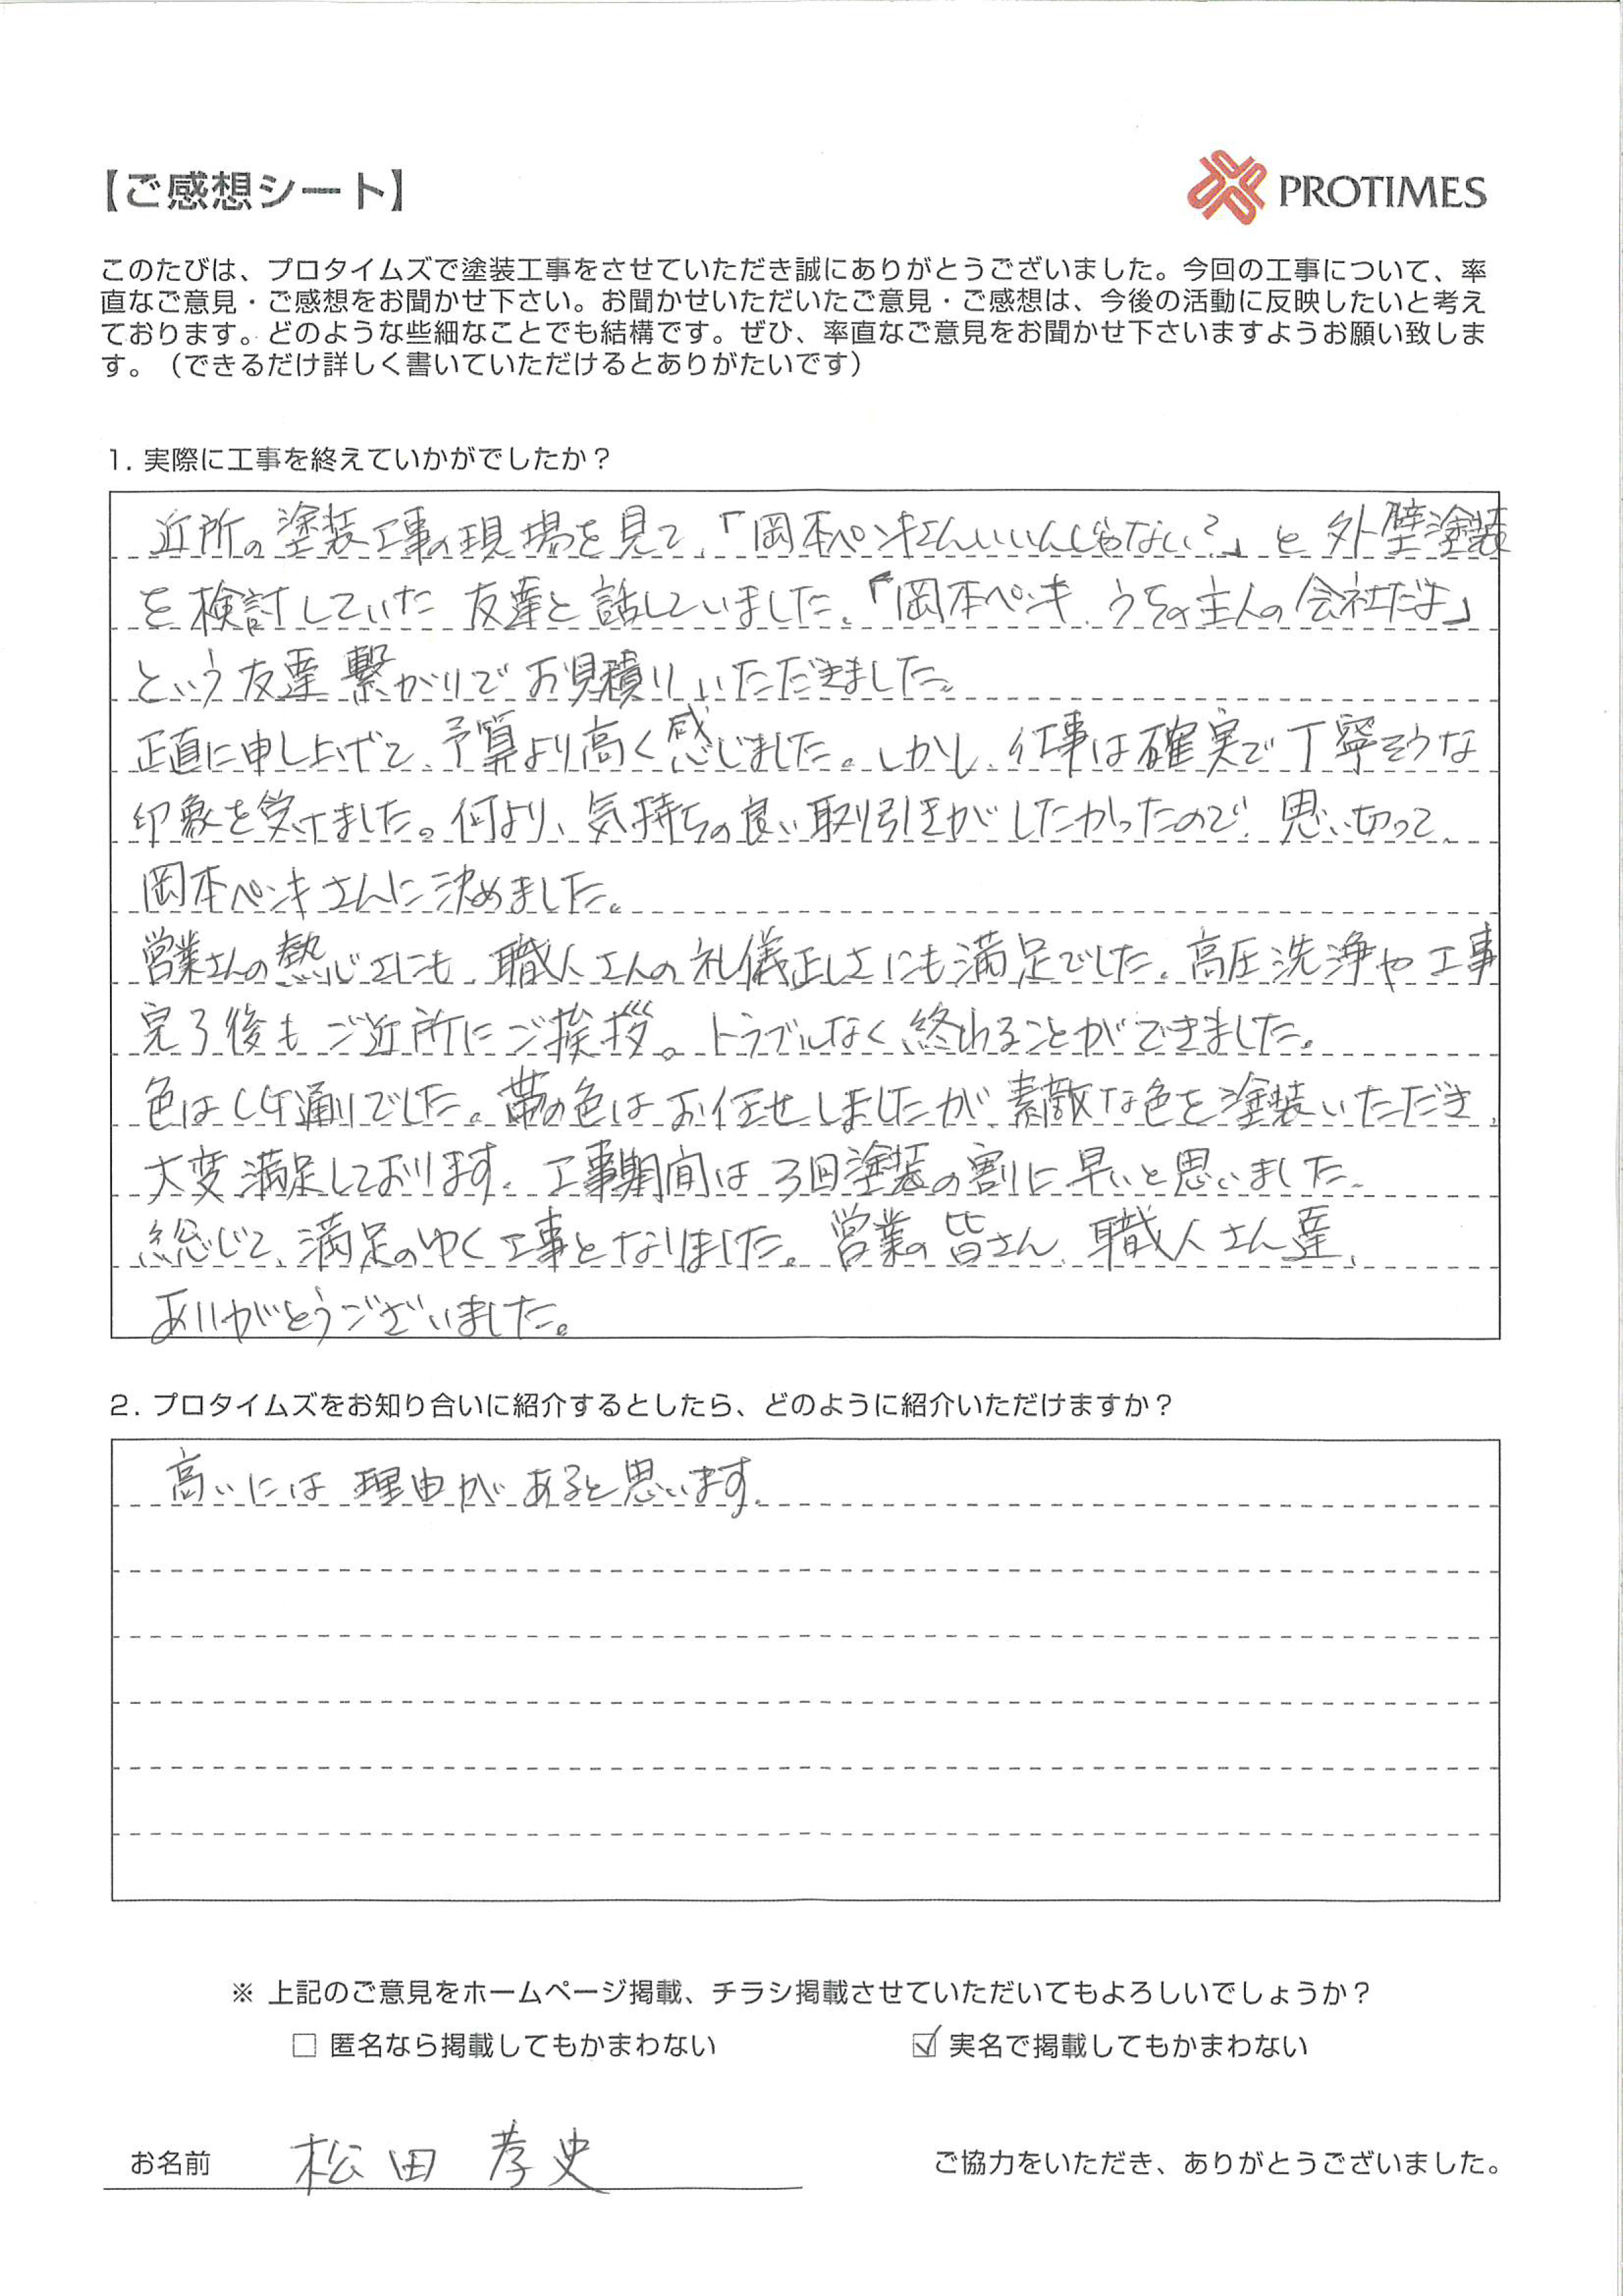 【ご感想シート】
PROTIMES
このたびは、プロタイムズで塗装工事をさせていただき誠にありがとうございました。今回の工事について、率
直なご意見・ご感想をお聞かせ下さい。お聞かせいただいたご意見・ご感想は、今後の活動に反映したいと考え
ております。どのような些細なことでも結構です。ぜひ、率直なご意見をお聞かせ下さいますようお願い致しま
す。（できるだけ詳しく書いていただけるとありがたいです）
1. 実際に工事を終えていかがでしたか？
近所の塗装工事の現場を見て、「岡本ペンキさんいいんじゃない？」と外壁塗装
を検討していた友達と話していました。「岡本ペンキ、うちの主人の会社だよ」
という友達繋がりでお見積りいただきました。
正直に申し上げて、予算より高く感じました。しかし、仕事は確実で丁寧そうな
印象を受けました。何より、気持ちの良い取り引きがしたかったので、思い切って、
岡本ペンキさんに決めました。
営業さんの熱心さにも、職人さんの礼儀正しさにも満足でした。高圧洗浄や工事
完了後もご近所にご挨拶。トラブルなく終わることができました。
色は通りでした。帯の色はお任せしましたが、素敵な色を塗装いただき、
大変満足しております。工事期間は3回塗装の割に早いと思いました。
総じて、満足のゆく工事となりました。営業の皆さん、職人さん達、
ありがとうございました。
2. プロタイムズをお知り合いに紹介するとしたら、どのように紹介いただけますか？
高いには理由があると思います。
※ 上記のご意見をホームページ掲載、チラシ掲載させていただいてもよろしいでしょうか？
□ 匿名なら掲載してもかまわない
☑ 実名で掲載してもかまわない
お名前 松田 孝史
ご協力をいただき、ありがとうございました。